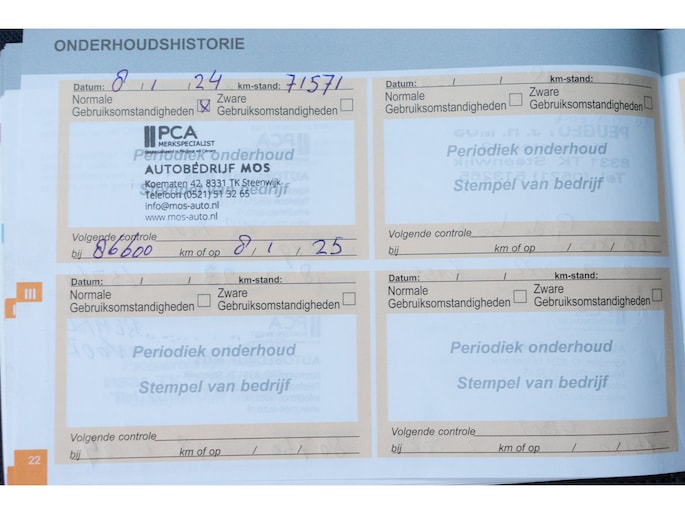 ONDERHOUDSHISTORIE
Datum: 8 / 1 / 24 km-stand: 71571
Normale Gebruiksomstandigheden Zware Gebruiksomstandigheden
PCA
MERKSPECIALIST
Periodiek onderhoud
AUTOBEDRIJF MOS
Koematen 42, 8331 TK Steenwijk
Stempel van bedrijf
Telefoon (0521) 51 32 65
info@mos-auto.nl
www.mos-auto.nl
Volgende controle
bij 86600 km of op 8 / 1 / 25
Datum: / / km-stand:
Normale Gebruiksomstandigheden Zware Gebruiksomstandigheden
Periodiek onderhoud
Stempel van bedrijf
Volgende controle
bij km of op / /
Datum: / / km-stand:
Normale Gebruiksomstandigheden Zware Gebruiksomstandigheden
Periodiek onderhoud
Stempel van bedrijf
Volgende controle
bij km of op / /
Datum: / / km-stand:
Normale Gebruiksomstandigheden Zware Gebruiksomstandigheden
Periodiek onderhoud
Stempel van bedrijf
Volgende controle
bij km of op / /
III
22